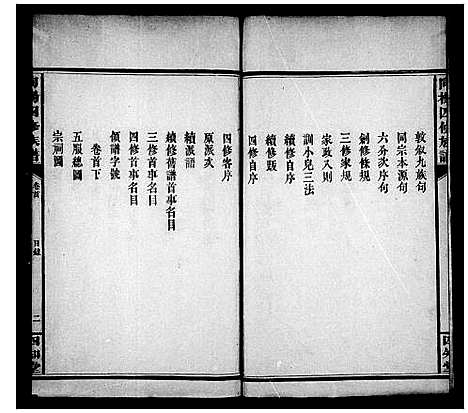 敦叙九族句
同宗本源句
六分次序句
創修條規
三修家規
家政八則
訓小兒三法
續修自序
續修跋
四修自序
四修客序
原派亥
續派語
續修舊譜首事名目
三修首事名目
四修首事名目
領譜字號
卷首下
五服總圖
宗祠圖
卷首
目錄
二